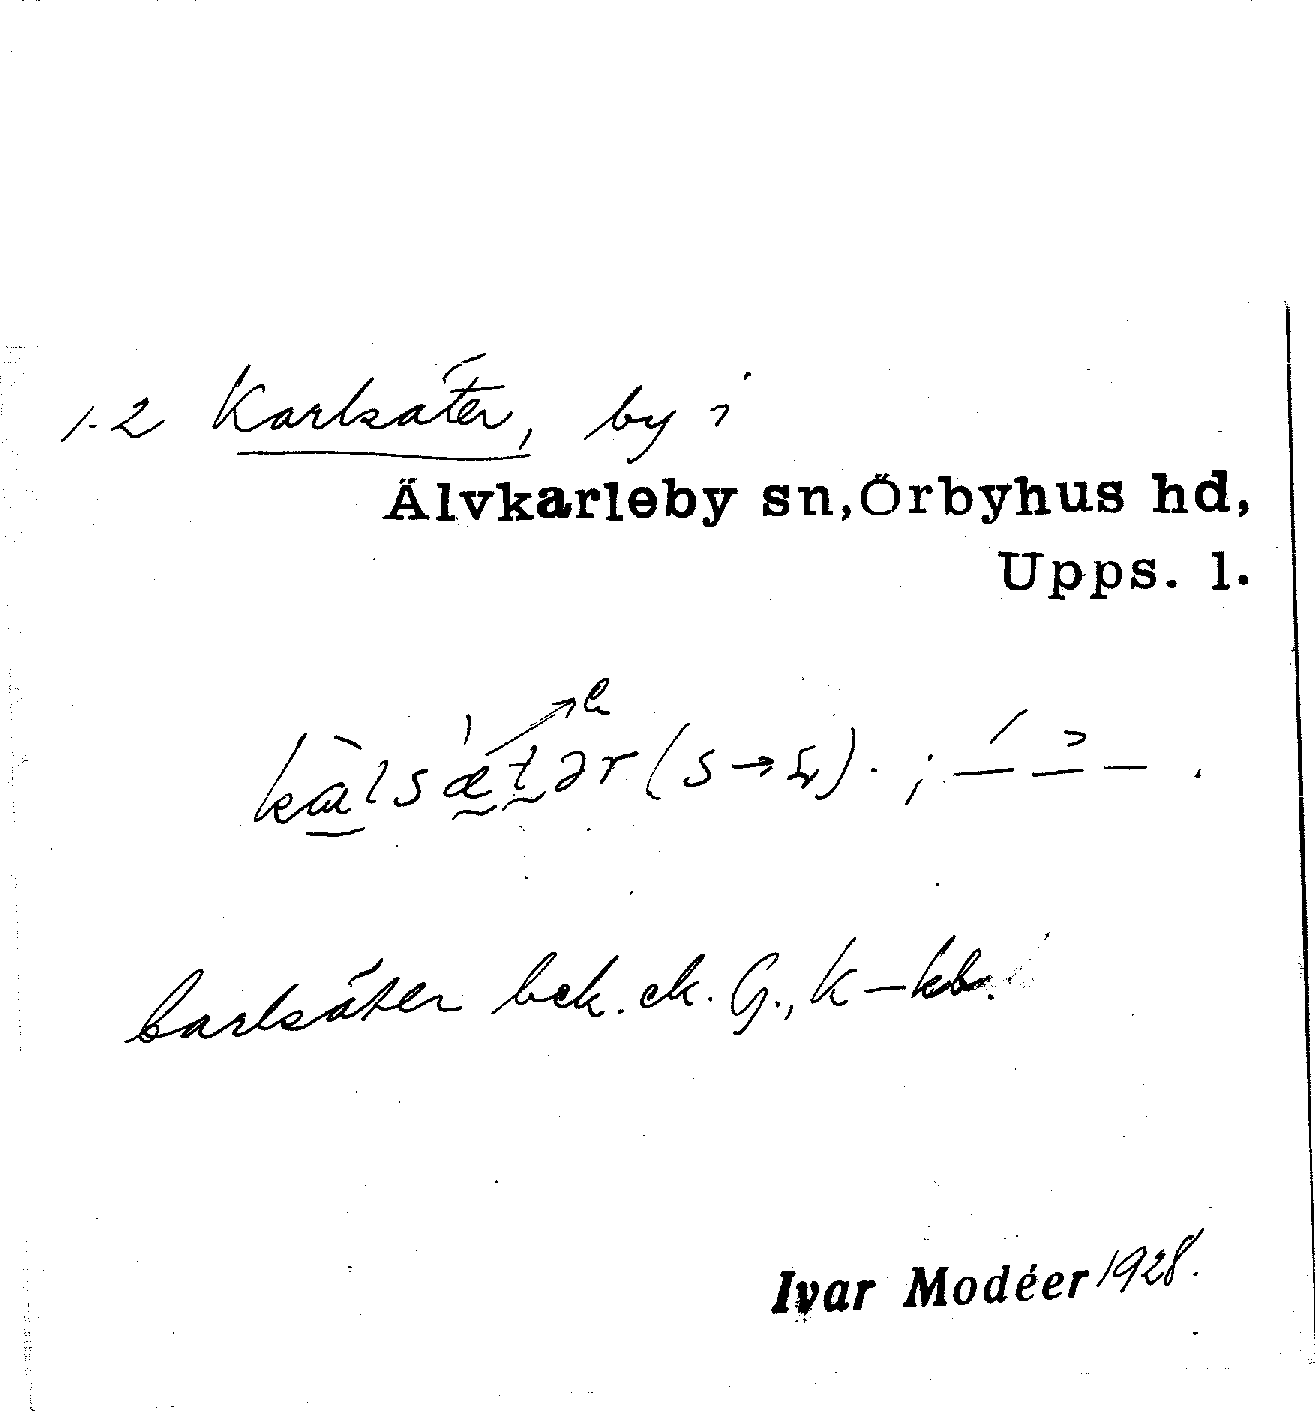 1-2 Karlsäter, by i
Älvkarleby sn, Örbyhus hd,
Upps. l.
kàlsætər (s→ʂ). ;
Carlsäter bek. ek. G., K – kb.
Ivar Modéer 1928.